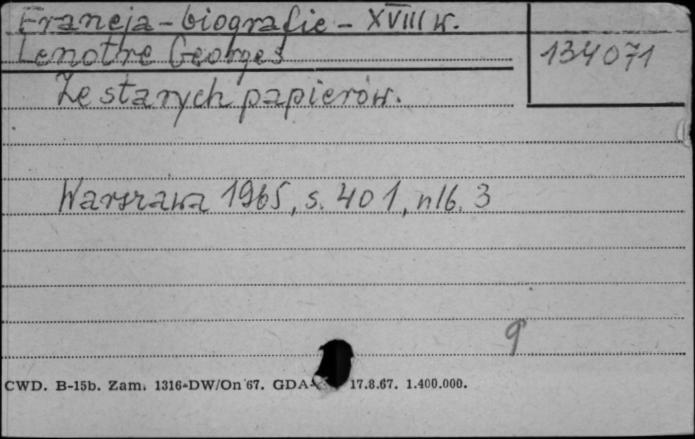 Francja - biografie - XVIII w.
Lenotre Georges
134071
Ze starych papierów.
Warszawa 1965, s. 401, nlb. 3
9
CWD. B-15b. Zam. 1316-DW/On 67. GDA- 17.8.67. 1.400.000.